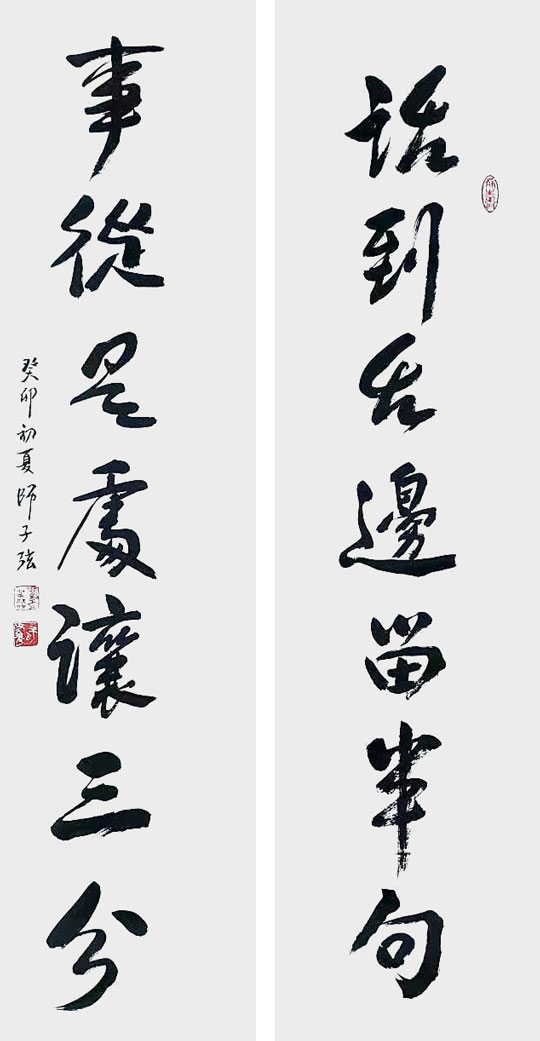 話到舌邊留半句
事從是處讓三分
癸卯初夏師子弦